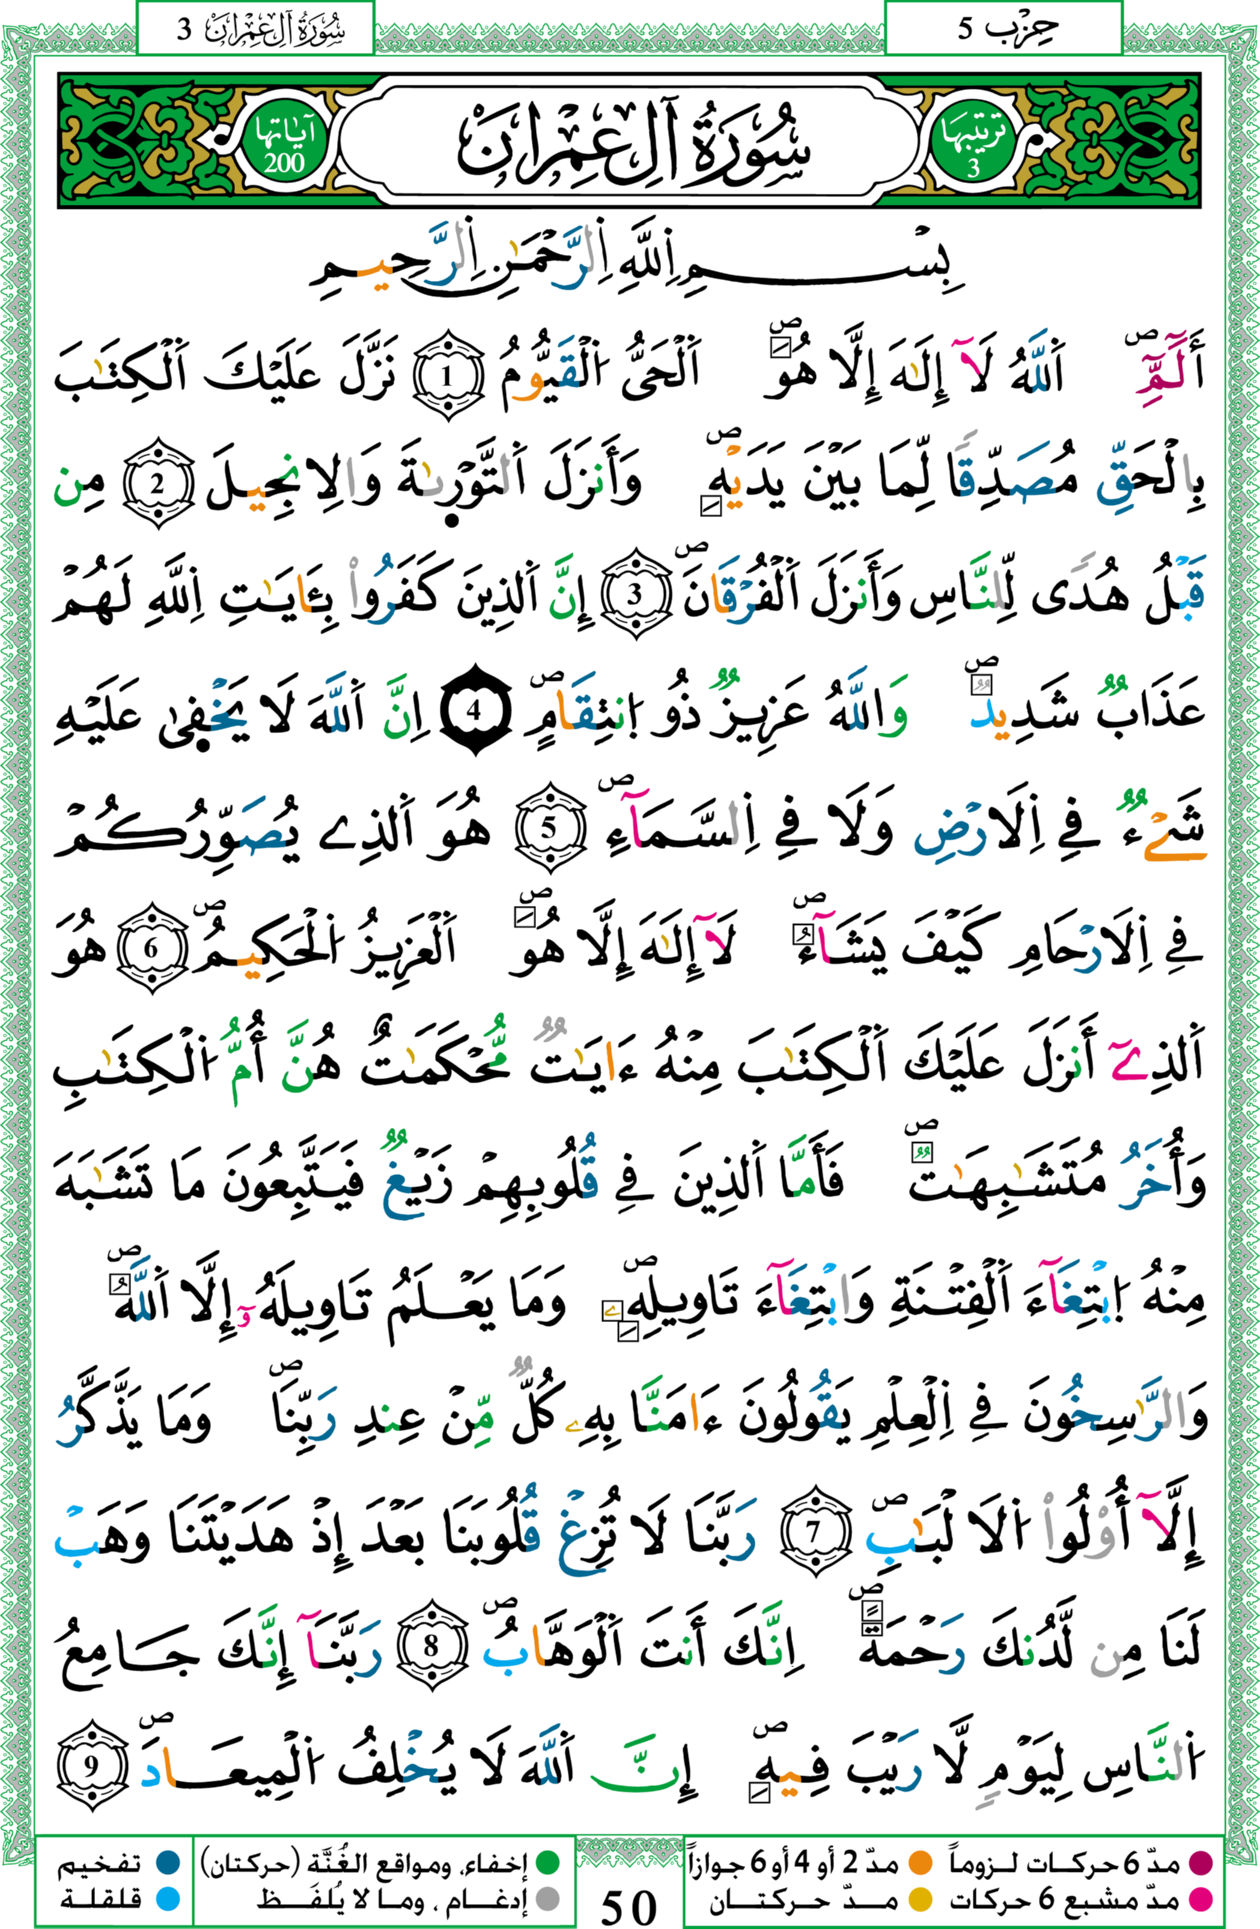 حِزْب 5
سُورَةُ آلِ عِمْرَانَ 3
تَرْتِيبُهَا 3
سُورَةُ آلِ عِمْرَانَ
آيَاتُهَا 200
بِسْمِ اِ۬للَّهِ اِ۬لرَّحْمَٰنِ اِ۬لرَّحِيمِ
أَلَٓمِّٓۖ اَ۬للَّهُ لَآ إِلَٰهَ إِلَّا هُوَۖ اَ۬لْحَيُّ اُ۬لْقَيُّومُ 1 نَزَّلَ عَلَيْكَ اَ۬لْكِتَٰبَ
بِالْحَقِّ مُصَدِّقاً لِّمَا بَيْنَ يَدَيْهِۖ وَأَنزَلَ اَ۬لتَّوْر۪ىٰةَ وَالِانجِيلَ 2 مِن
قَبْلُ هُدىً لِّلنَّاسِ وَأَنزَلَ اَ۬لْفُرْقَانَۖ 3 إِنَّ اَ۬لذِينَ كَفَرُواْ بِـَٔايَٰتِ اِ۬للَّهِ لَهُمْ
عَذَابٌ شَدِيدٌۖ وَاللَّهُ عَزِيزٌ ذُو اُ۪نتِقَامٍۖ 4 اِنَّ اَ۬للَّهَ لَا يَخْف۪ىٰ عَلَيْهِ
شَےْءٌ فِے اِ۬لَارْضِ وَلَا فِے اِ۬لسَّمَآءِۖ 5 هُوَ اَ۬لذِے يُصَوِّرُكُمْ
فِے اِ۬لَارْحَامِ كَيْفَ يَشَآءُۖ لَآ إِلَٰهَ إِلَّا هُوَۖ اَ۬لْعَزِيزُ اُ۬لْحَكِيمُۖ 6 هُوَ
اَ۬لذِےٓ أَنزَلَ عَلَيْكَ اَ۬لْكِتَٰبَ مِنْهُ ءَايَٰتٌ مُّحْكَمَٰتٌ هُنَّ أُمُّ اُ۬لْكِتَٰبِ
وَأُخَرُ مُتَشَٰبِهَٰتٌۖ فَأَمَّا اَ۬لذِينَ فِے قُلُوبِهِمْ زَيْغٌ فَيَتَّبِعُونَ مَا تَشَٰبَهَ
مِنْهُ اُ۪بْتِغَآءَ اَ۬لْفِتْنَةِ وَابْتِغَآءَ تَاوِيلِهِۦۖ وَمَا يَعْلَمُ تَاوِيلَهُۥٓ إِلَّا اَ۬للَّهُۖ
وَالرَّٰسِخُونَ فِے اِ۬لْعِلْمِ يَقُولُونَ ءَامَنَّا بِهِۦ كُلٌّ مِّنْ عِندِ رَبِّنَاۖ وَمَا يَذَّكَّرُ
إِلَّآ أُوْلُواْ اُ۬لَالْبَٰبِۖ 7 رَبَّنَا لَا تُزِغْ قُلُوبَنَا بَعْدَ إِذْ هَدَيْتَنَا وَهَبْ
لَنَا مِن لَّدُنكَ رَحْمَةًۖ اِنَّكَ أَنتَ اَ۬لْوَهَّابُۖ 8 رَبَّنَآ إِنَّكَ جَامِعُ
اُ۬لنَّاسِ لِيَوْمٍ لَّا رَيْبَ فِيهِۖ إِنَّ اَ۬للَّهَ لَا يُخْلِفُ اُ۬لْمِيعَادَۖ 9
مدّ 6 حركات لـزوماً مدّ 2 أو 4 أو 6 جوازاً إخفاء، ومواقع الغُنَّة (حركتان) تفخيم
مدّ مشبع 6 حركات مـــدّ حركتــان إدغـام ، ومـا لا يُلفَـظ قلقلة
50